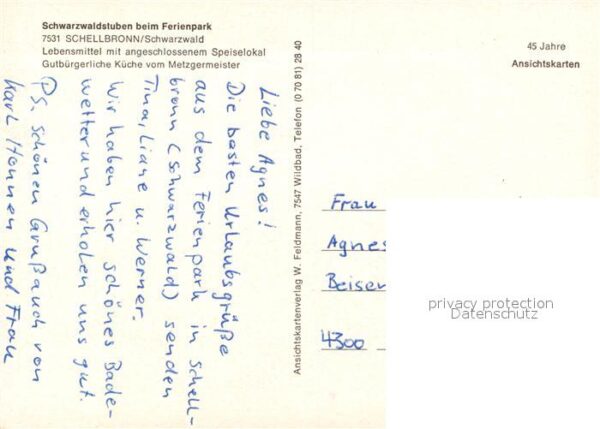 Schwarzwaldstuben beim Ferienpark
7531 SCHELLBRONN/Schwarzwald
Lebensmittel mit angeschlossenem Speiselokal
Gutbürgerliche Küche vom Metzgermeister
45 Jahre
Ansichtskarten
Liebe Agnes!
Die besten Urlaubsgrüße
aus dem Ferienpark in Schell-
bronn (Schwarzwald) senden
Tina, Liane u. Werner.
Wir haben hier schönes Bade-
wetter und erholen uns gut.
PS. schönen Gruß auch von
Karl Hannen und Frau
Ansichtskartenverlag W. Feldmann, 7547 Wildbad, Telefon (0 70 81) 28 40
Frau
Agnes
Beisen
4300
privacy protection
Datenschutz